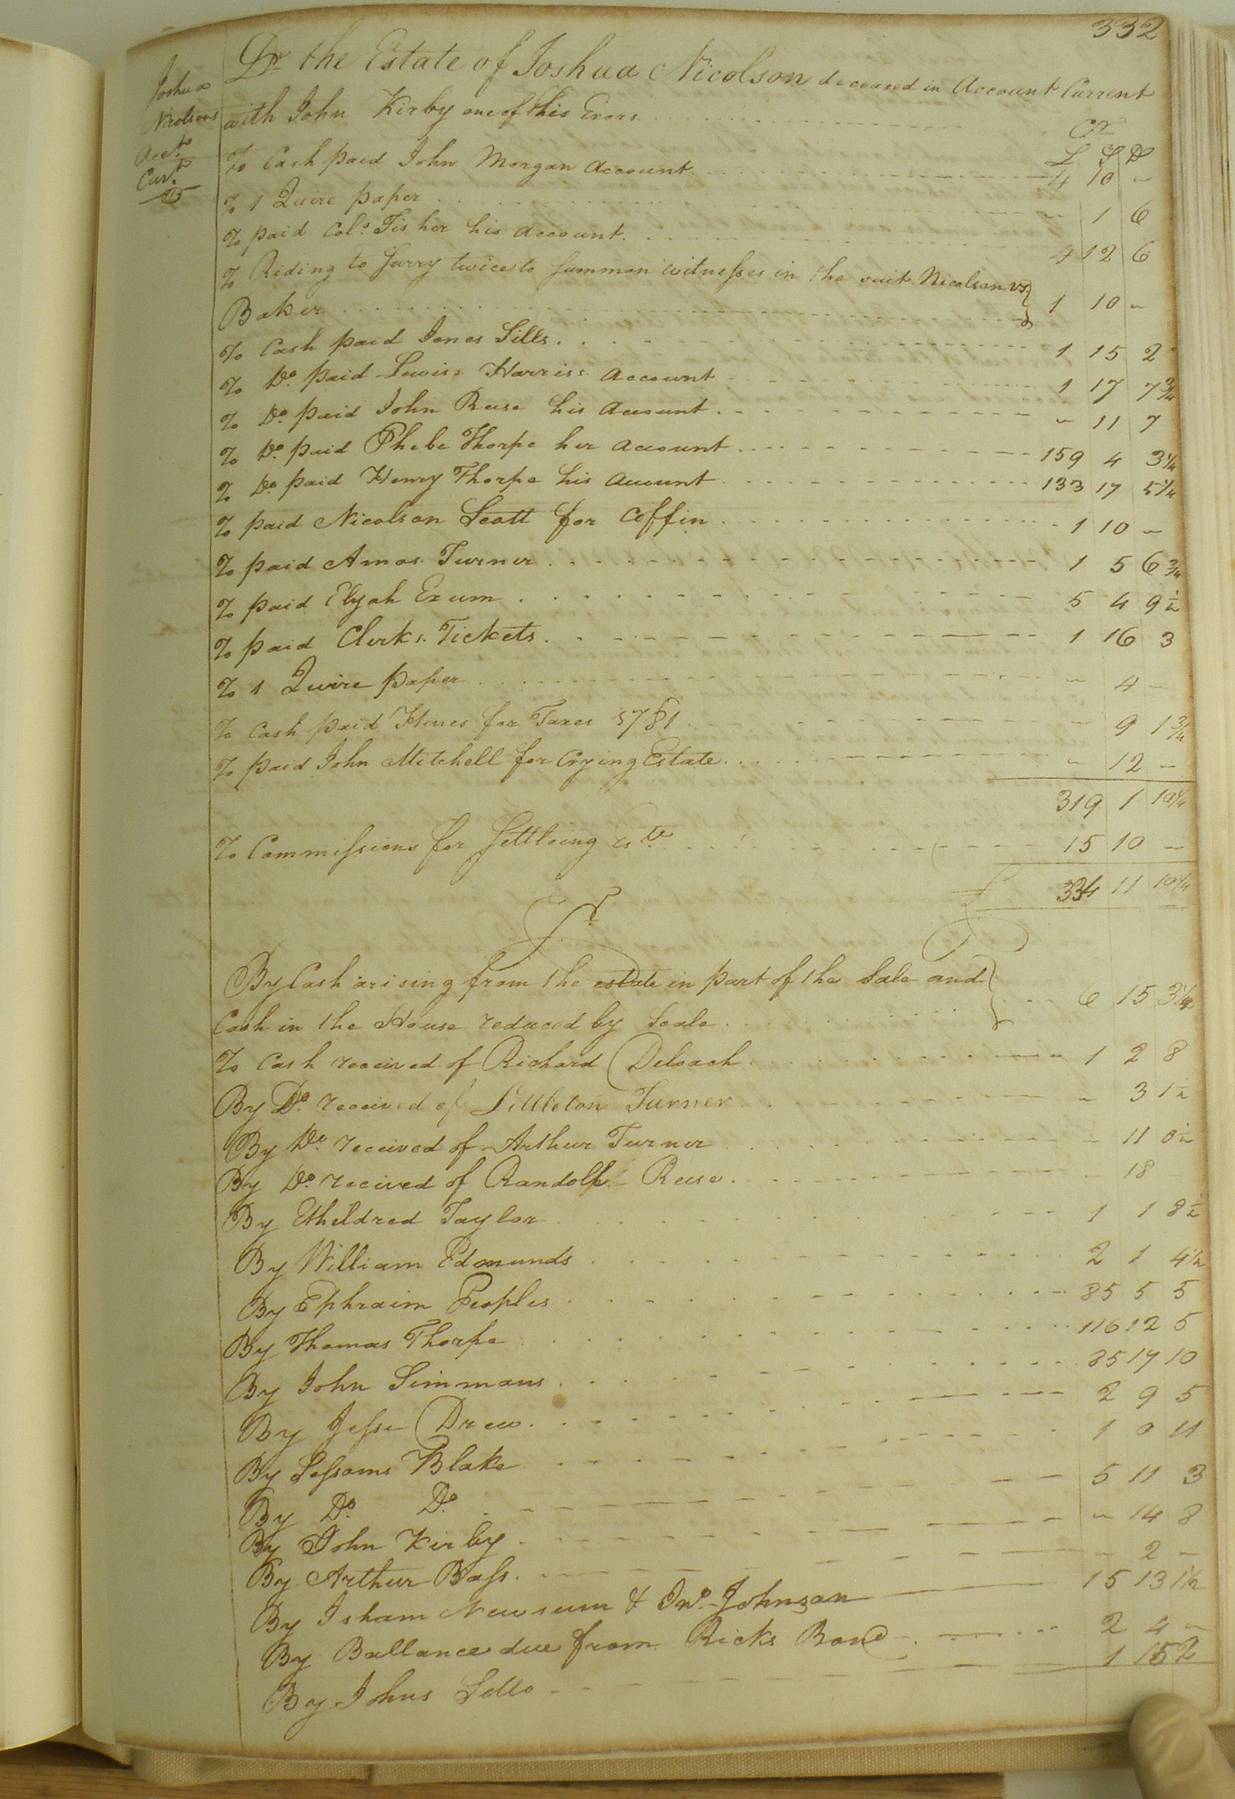 332
Joshua
Nicolsons
Acct.
Curt.
Dr. the Estate of Joshua Nicolson deceased in Account Current
with John Kirby one of his Exors
Cr
£ S D
To Cash paid John Morgan Account 4 10 -
To 1 Quire paper - 1 6
To paid Colo. Fisher his account. 4 12 6
To Riding to Surry twice to summon witnesses in the suit Nicolson vs
Baker 1 10 -
To Cash paid Jones Sills. 1 15 2
To Do. paid Lewis Harriss account 1 17 7 3/4
To Do. paid John Reese his account. - 11 7
To Do. paid Phebe Thorpe her account 159 4 3 1/4
To Do. paid Henry Thorpe his account 133 17 5 1/4
To paid Nicolson Scott for Coffin 1 10 -
To paid Amos Turner 1 5 6 3/4
To paid Elijah Exum 5 4 9 1/2
To paid Clerks Tickets. 1 16 3
To 1 Quire paper - 4 -
To Cash paid Hines for Taxes 1781 - 9 1 3/4
To paid John Mitchell for Crying Estate - 12 -
319 1 10 1/4
To Commissions for Settleing 15 10 -
£ 334 11 10 1/4
Cr
By Cash arising from the estate in part of the Sale and
Cash in the House reduced by Scale 6 15 3 1/4
To Cash received of Richard Deloach 1 2 8
By Do. received of Littleton Turner - 3 1 1/2
By Do. received of Arthur Turner - 11 0 1/2
By Do. recived of Randolph Reese. - 18
By Etheldred Taylor 1 1 8 1/2
By William Edmunds 2 1 4 1/2
By Ephraim Peoples 85 5 5
By Thomas Thorpe 116 12 5
By John Simmons 35 17 10
By Jesse Drew. 2 9 5
By Sessoms Blake 1 0 11
By Do. Do. 5 11 3
By John Kirby - 14 8
By Arthur Bass. - 2 -
By Isham Newsum & Jno. Johnson 15 13 1 1/2
By Ballance due from Ricks Bond 2 4 -
By Johns Sells 1 15 2